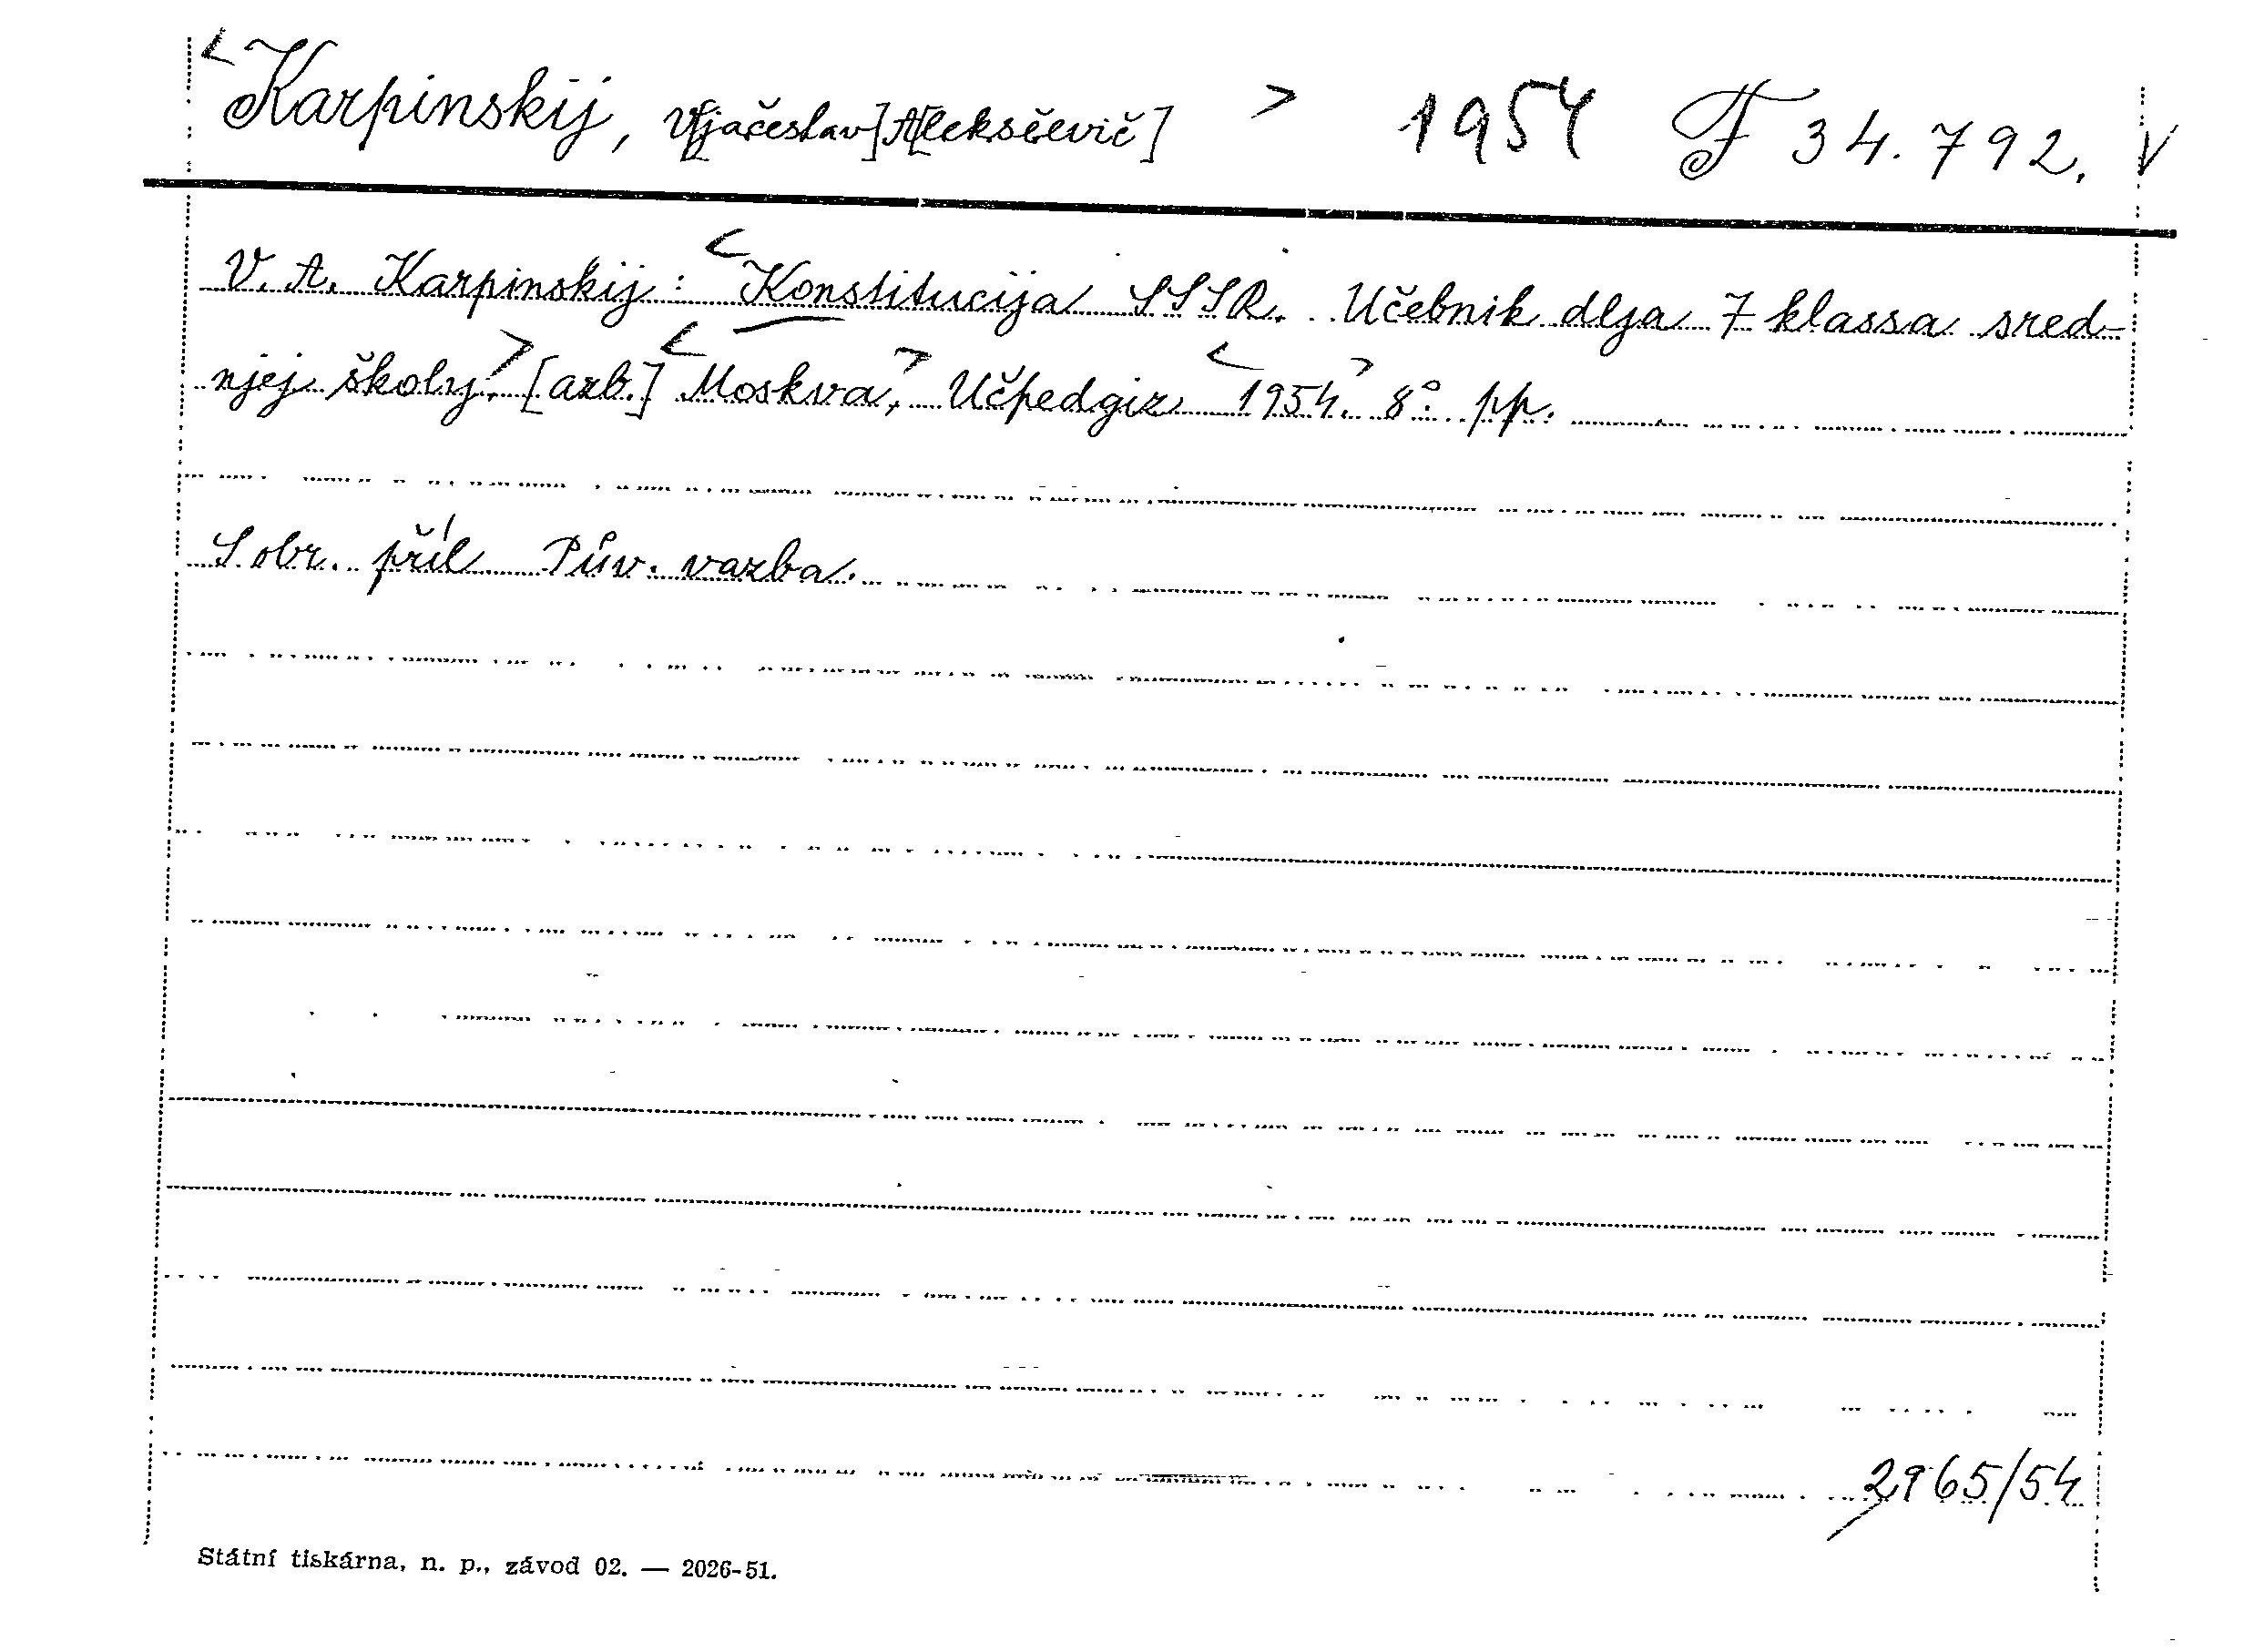 <Karpinskij, V[jačeslav] A[leksěevič] > 1954 F 34.792. V
V. A. Karpinskij: <Konstitucija SSSR. Učebnik dlja 7 klassa sred-
njej školy.> [azb.] <Moskva,> Učpedgiz <1954.> 8°. pp.
S obr. příl. Pův. vazba.
2965/54
Státní tiskárna, n. p., závod 02. — 2026-51.